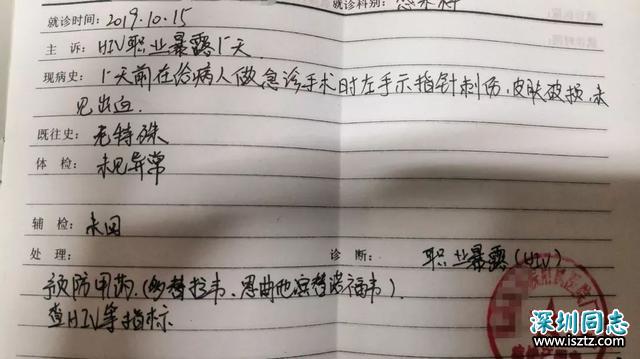 就诊时间: 2019.10.15 就诊科别: 感染科
主 诉: HIV职业暴露1天
现病史: 1天前在给病人做急诊手术时左手示指针刺伤,皮肤破损,未
见出血.
既往史: 无特殊
体 检: 未见异常
辅 检: 未回
处 理: 诊 断: 职业暴露(HIV)
预防用药.(多替拉韦、恩曲他滨替诺福韦).
查HIV等指标
深圳同志
www.isztz.com